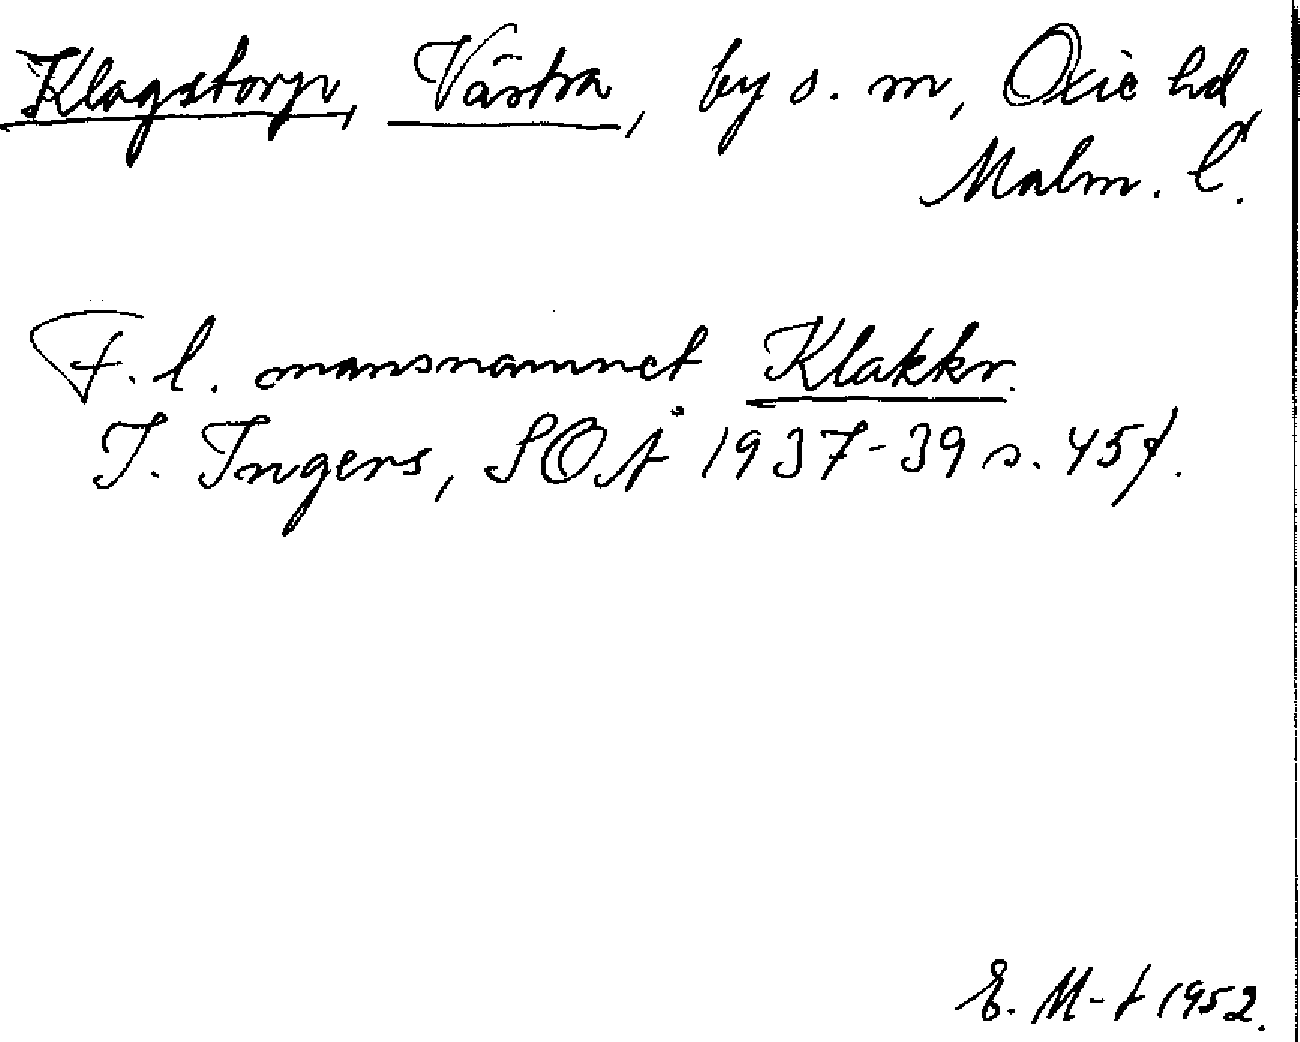 Klagstorp, Västra, by s. m, Oxie hd,
Malm. l.
F. l. mansnamnet Klakkr.
I. Ingers, SOÅ 1937-39 s. 45f.
E. M-t 1952.